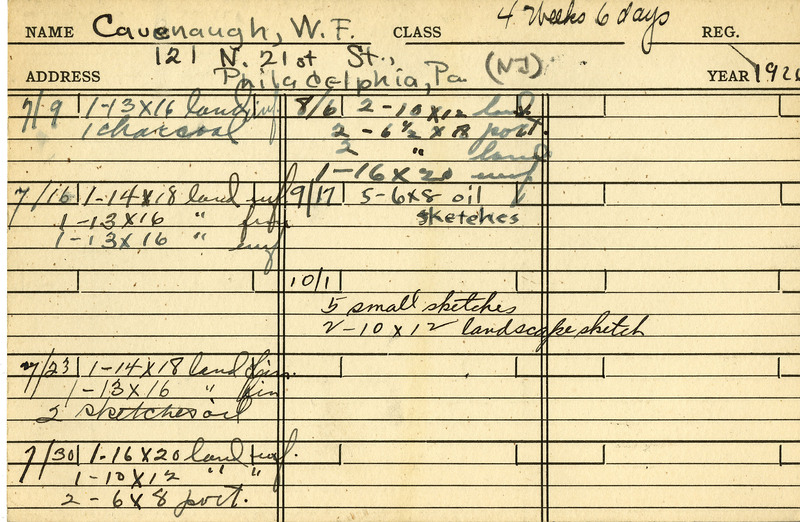 NAME Cavenaugh, W. F. CLASS 4 Weeks 6 days REG.
121 N. 21st St.,
ADDRESS Philadelphia, Pa (NJ) YEAR 192
7/9 1-13x16 land unf
1 charcoal
7/16 1-14x18 land unf
1-13x16 " fin
1-13x16 " unf
7/23 1-14x18 land fin.
1-13x16 " fin
2 sketches oil
7/30 1-16x20 land unf.
1-10x12 " "
2-6x8 port.
8/6 2-10x12 land
2-6½x8 port.
2 " land
1-16x20 unf
9/17 5-6x8 oil
sketches
10/1
5 small sketches
2-10x12 landscape sketch